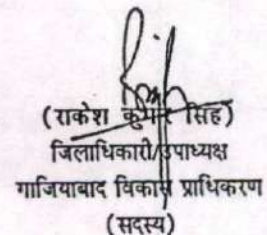 (राकेश कुमार सिंह)
जिलाधिकारी/उपाध्यक्ष
गाजियाबाद विकास प्राधिकरण
(सदस्य)